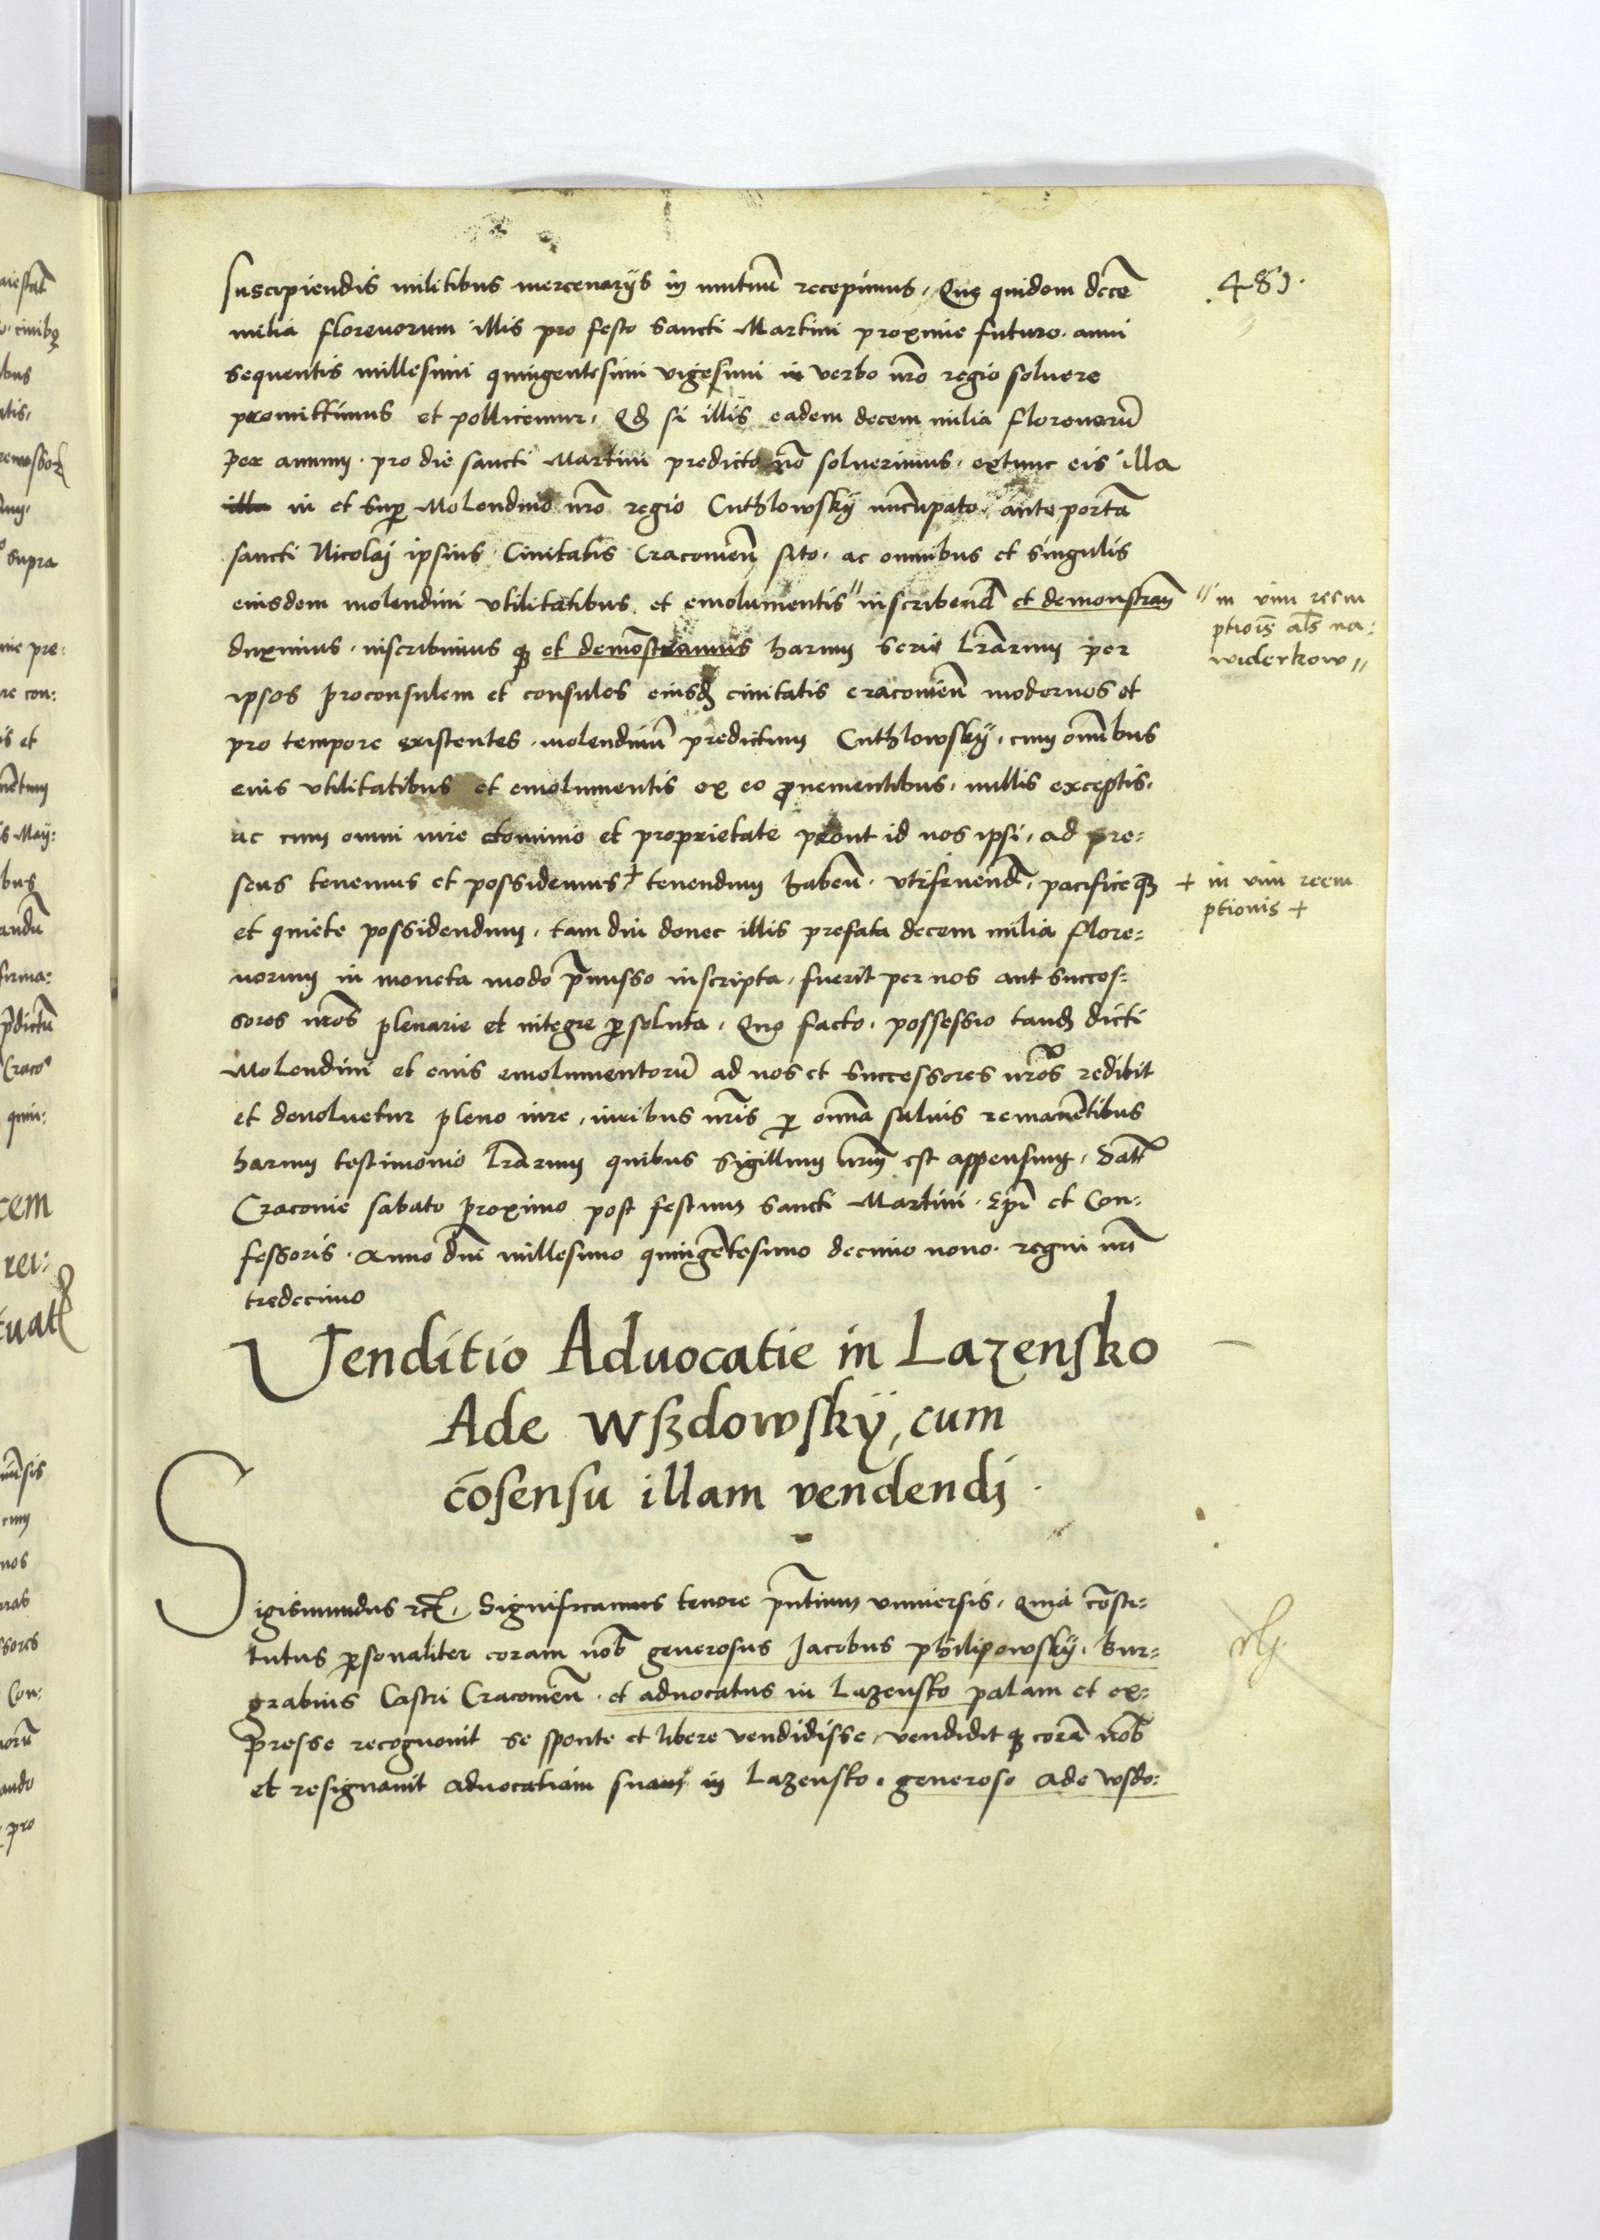 .481.
suscipiendis militibus mercenarijs in mutuū recepimus, Que quidem decē
milia florenorum illis pro festo sancti Martini proxime futuro. anni
sequentis millesimi quingentesimi vigesimi in verbo nr̄o regio soluere
promittimus et pollicemur, Qd si illis eadem decem milia florenorū
per annum. pro die sancti Martini predicto nō soluerimus. extunc eis illa
illa in et sup Molendino nr̄o regio Cuthlowskÿ nuncupato. ante portā
sancti Nicolai ipsius Ciuitatis Cracouien̄ sito. ac omnibus et singulis
eiusdem molendini vtilitatibus et emolumentis // inscribend et demonstran̄
// in vim reem
ptiōis als na
widerkow //
duximus. inscribimus q et demōstramus harum serie lr̄arum per
ipsos proconsulem et consules eiusd ciuitatis cracouien̄ modernos et
pro tempore existentes. molendinū predictum Cuthlowskÿ. cum omībus
eius vtilitatibus et emolumentis ex eo prouenientibus. nullis exceptis.
ac cum omni iure dominio et proprietate prout id nos ipsi. ad pre=
sens tenemus et possidemus + tenendum haben̄. vtifruend. pacificeq
+ in vim reem
ptionis +
et quiete possidendum. tam diu donec illis prefata decem milia flore=
norum in moneta modo p̄misso inscripta. fuerit per nos aut succes=
sores nr̄os plenarie et integre psoluta. Quo facto. possessio tand dicti
Molendini et eius emolumentorū ad nos et successores nr̄os redibit
et deuoluetur pleno iure. iuribus nr̄is p omnīa saluis remanētibus
harum testimonio lr̄arum quibus sigillum nr̄m est appensum. Dat̄
Cracouie sabato proximo post festum sancti Martini. Ep̄i et Con=
fessoris. Anno dn̄i millesimo quingētesimo decimo nono. regni nr̄i
tredecimo
Venditio Aduocatie in Lazensko
Ade Wszdowskÿ, cum
cōsensu illam vendendi.
Sigismundus rc̄. Significamus tenore pn̄tium vniuersis. Quia cōsti=
tutus psonaliter coram nob̄ generosus Jacobus philipowskÿ. Bur=
grabius Castri Cracouien̄. et aduocatus in Lazensko palam et ex=
presse recognouit se sponte et libere vendidisse. vendidit q corā nob̄
et resignauit aduocatiam suam in Lazensko. generoso Ade wsdo=